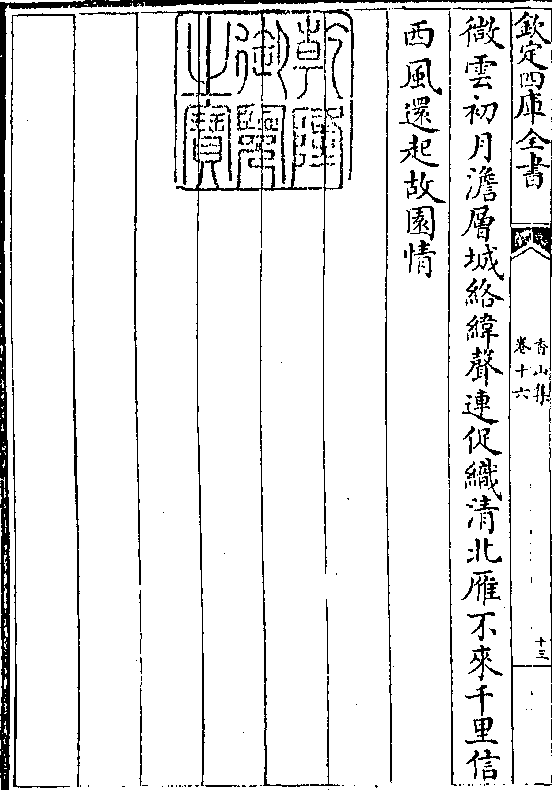 欽定四庫全書
香山集
卷十六
十三
微雲初月澹層城絡緯聲連促織清北雁不來千里信
西風還起故園情
乾隆
御覽
之寶